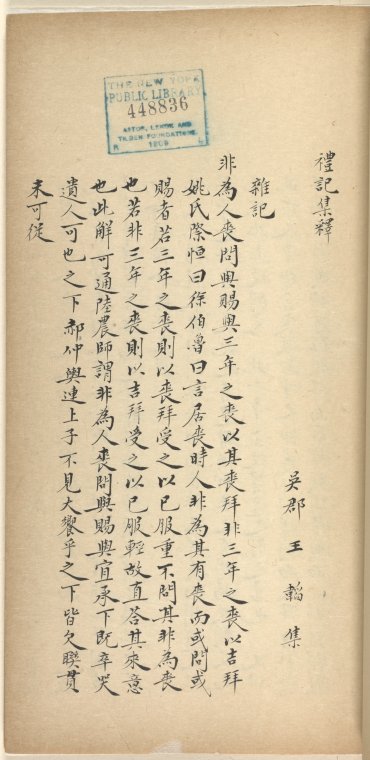 禮記集釋
吳郡 王韜 集
雜記
非為人喪問與賜與三年之喪以其喪拜非三年之喪以吉拜
姚氏際恒曰徐伯魯曰言居喪時人非為其有喪而或問或
賜者若三年之喪則以喪拜受之以已服重不問其非為喪
也若非三年之喪則以吉拜受之以已服輕故直荅其來意
也此解可通陸農師謂非為人喪問與賜與宜承下既卒哭
遺人可也之下郝仲輿連上子不見大饗乎之下皆欠聯貫
未可從
THE NEW YORK
PUBLIC LIBRARY
448836
ASTOR, LENOX AND
TILDEN FOUNDATIONS
R 1909 L